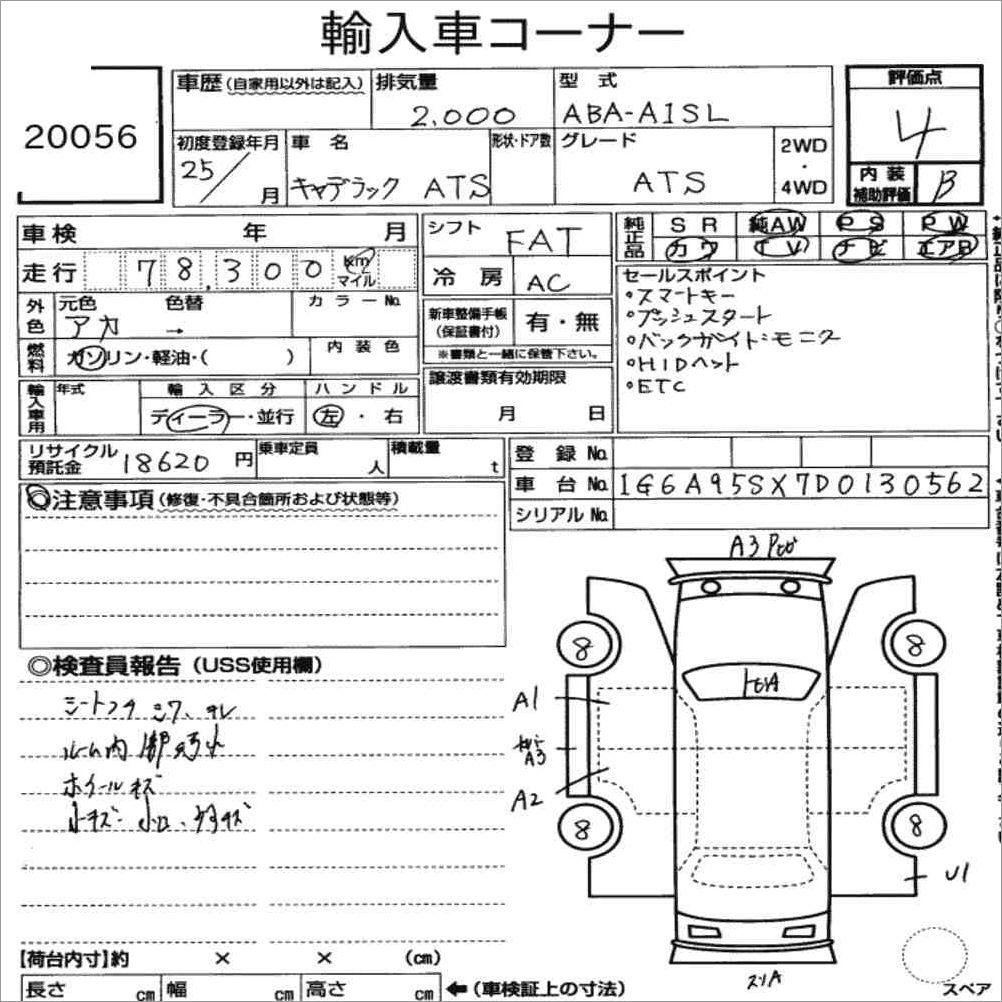 輸入車コーナー
20056
車歴(自家用以外は記入)
排気量
2,000
型 式
ABA-A1SL
評価点
4
初度登録年月
25/ 月
車 名
キャデラック ATS
形状・ドア数
グレード
ATS
2WD
・
4WD
内 装
補助評価
B
車検 年 月
シフト
FAT
純正品
SR 純AW PS PW
カワ TV ナビ エアB
走行 78,300 km
マイル
冷 房
AC
セールスポイント
・スマートキー
・プッシュスタート
・バックガイドモニタ
・HIDヘット
・ETC
外色
元色 色替
カラーNo.
アカ →
新車整備手帳
(保証書付)
有・無
※書類と一緒に保管下さい。
燃料
ガソリン・軽油・( )
内 装 色
譲渡書類有効期限
月 日
輸入車用
年式
輸 入 区 分
ディーラー・並行
ハ ン ド ル
左 ・ 右
リサイクル
預託金
18620 円
乗車定員
人
積載量
t
登 録 No.
車 台 No.
1G6A95SX7D0130562
シリアル No.
◎注意事項(修復・不具合箇所および状態等)
◎検査員報告(USS使用欄)
シートコゲ シワ、スレ
ルーム内
ホイールキズ
小キズ
A3
A1
A3
A2
8
8
8
8
U1
スリA
【荷台内寸】約 × × (cm)
長さ cm 幅 cm 高さ cm
←(車検証上の寸法)
スペア